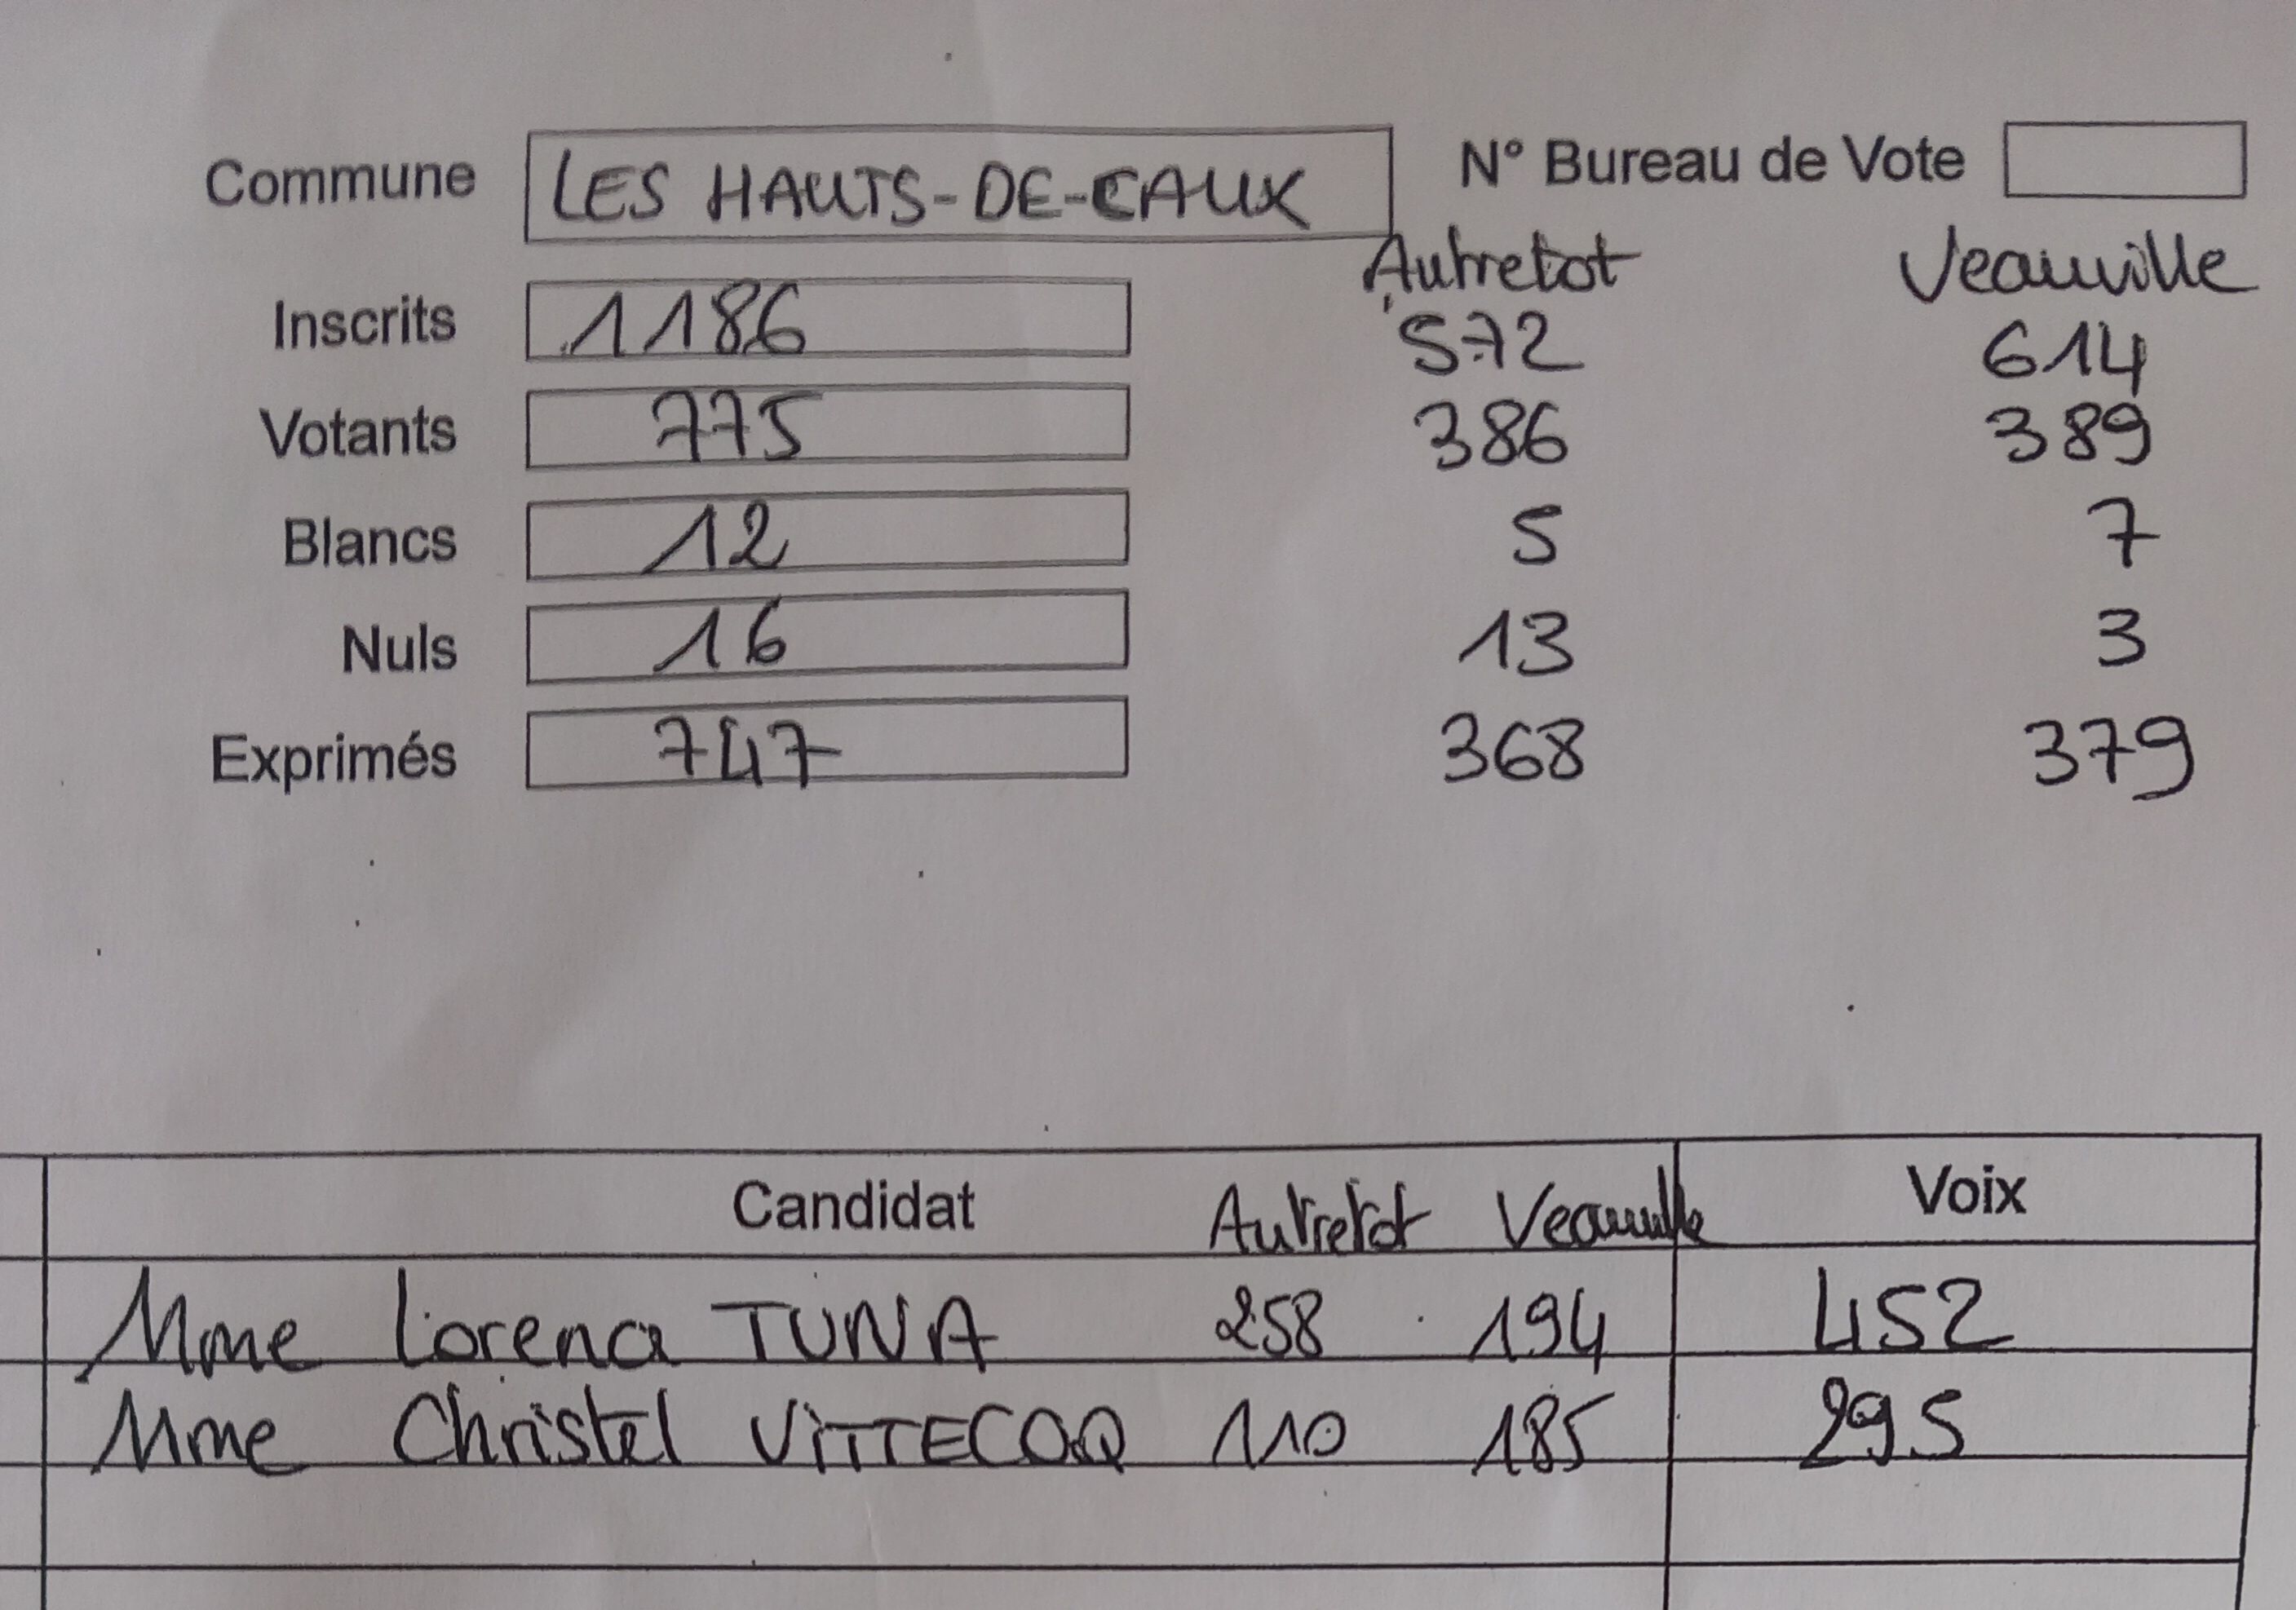 Commune LES HAUTS-DE-CAUX N° Bureau de Vote
Autretot Veauville
Inscrits 1186 572 614
Votants 775 386 389
Blancs 12 5 7
Nuls 16 13 3
Exprimés 747 368 379
Candidat Autretot Veauville Voix
Mme Lorena TUNA 258 194 452
Mme Christel ViTTECOQ 110 185 295